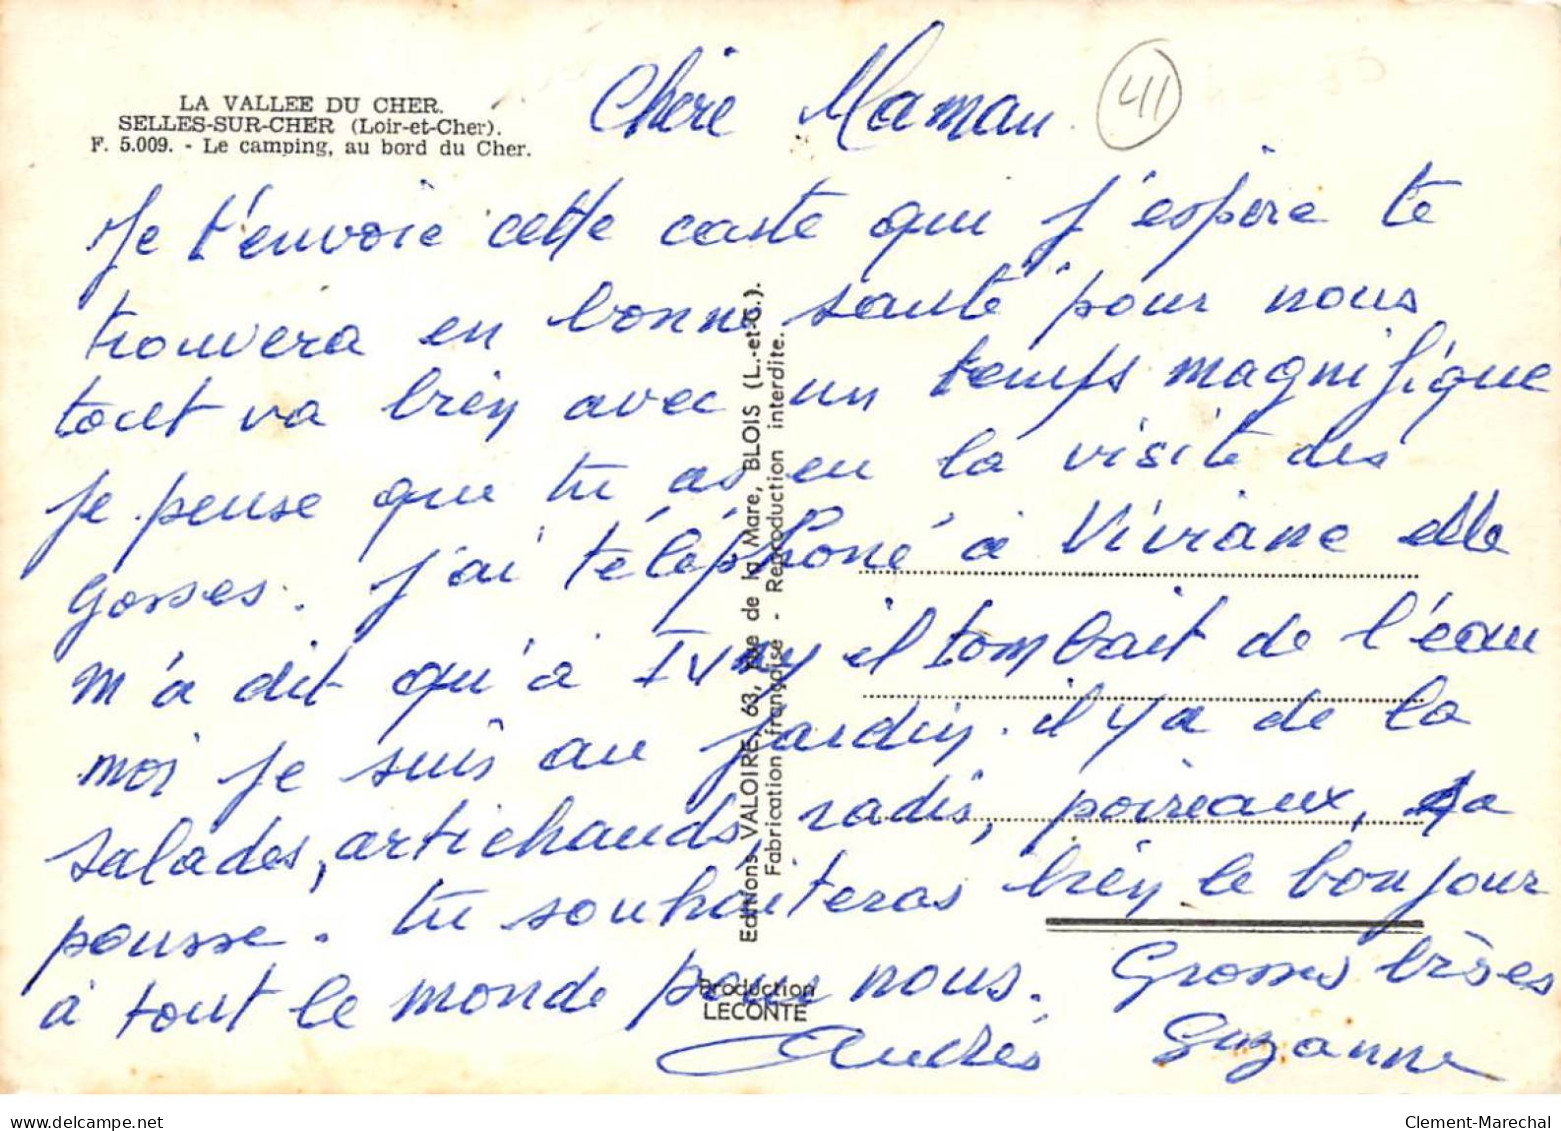 LA VALLEE DU CHER.
SELLES-SUR-CHER (Loir-et-Cher).
F. 5.009. - Le camping, au bord du Cher.
41
Chère Maman
Je t'envoie cette carte qui j'espère te
trouvera en bonne santé pour nous
tout va bien avec un temps magnifique
je pense que tu as eu la visite des
gosses. j'ai téléphoné à Viviane elle
m'a dit qu'à Ivry il tombait de l'eau
moi je suis au jardin. il y a de la
salades, artichauds, radis, poireaux, ça
pousse. tu souhaiteras bien le bonjour
à tout le monde pour nous. Grosses bises
Andrés Suzanne
Editions VALOIRE, 63, Rue de la Mare, BLOIS (L.-et-C.).
Fabrication française - Reproduction interdite.
Production
LECONTE
delcampe.net
Clement-Marechal